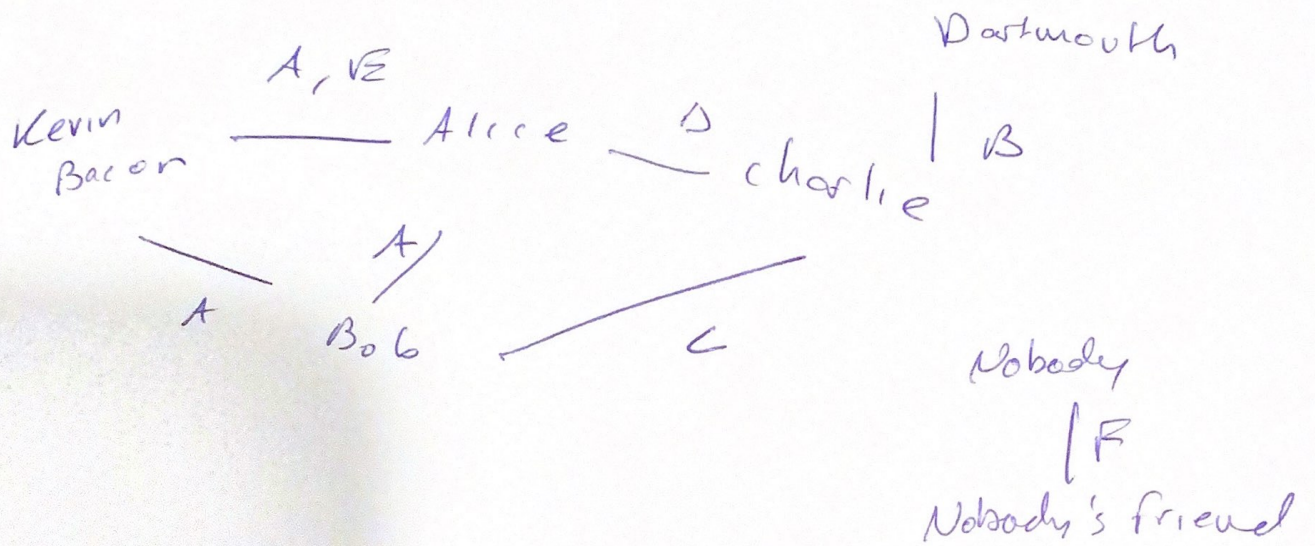 Dartmouth
A, E
Kevin
Bacon
Alice
D
Charlie
B
A
A
Bob
C
Nobody
F
Nobody's friend